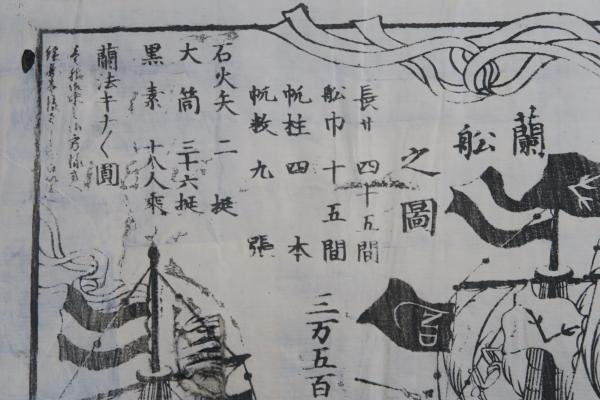 蘭舩
之圖
長サ 四十五間
舩巾 十五間
帆柱 四本
帆数 九張
石火矢 二挺
大筒 三十六挺
黒素 十八人乘
蘭法キナノ圓
二万五百